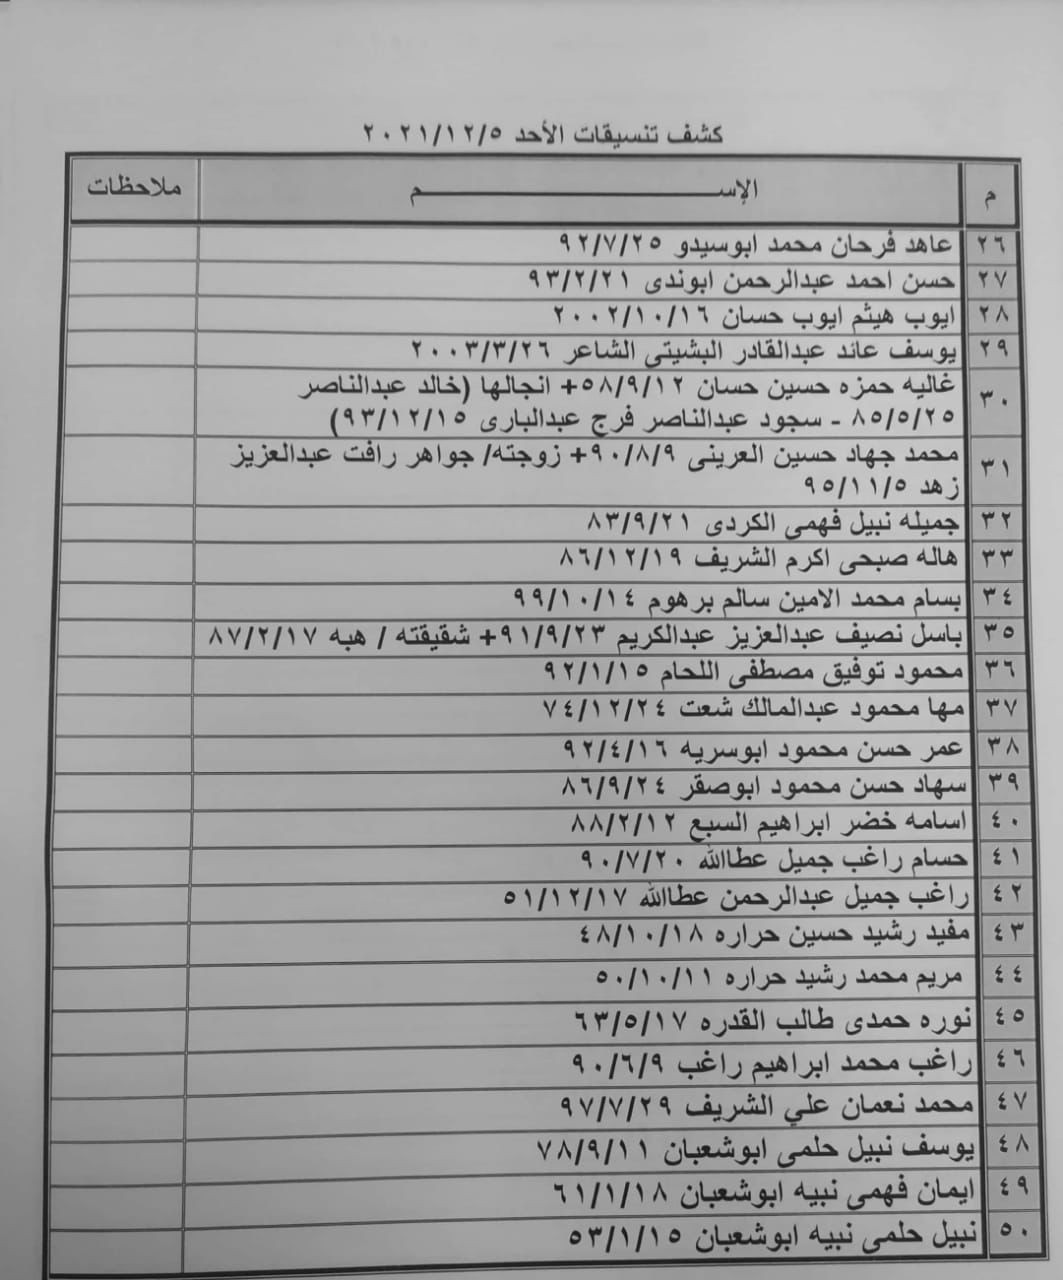 كشف تنسيقات الأحد ٢٠٢١/١٢/٥
م الإســـــــــــــم ملاحظات
٢٦ عاهد فرحان محمد ابوسيدو ٩٢/٧/٢٥
٢٧ حسن احمد عبدالرحمن ابوندى ٩٣/٢/٢١
٢٨ ايوب هيثم ايوب حسان ٢٠٠٢/١٠/١٦
٢٩ يوسف عائد عبدالقادر البشيتى الشاعر ٢٠٠٣/٣/٢٦
٣٠ غاليه حمزه حسين حسان ٥٨/٩/١٢+ انجالها (خالد عبدالناصر
٨٥/٥/٢٥ - سجود عبدالناصر فرج عبدالبارى ٩٣/١٢/١٥)
٣١ محمد جهاد حسين العرينى ٩٠/٨/٩+ زوجته/ جواهر رافت عبدالعزيز
زهد ٩٥/١١/٥
٣٢ جميله نبيل فهمى الكردى ٨٣/٩/٢١
٣٣ هاله صبحى اكرم الشريف ٨٦/١٢/١٩
٣٤ بسام محمد الامين سالم برهوم ٩٩/١٠/١٤
٣٥ باسل نصيف عبدالعزيز عبدالكريم ٩١/٩/٢٣+ شقيقته / هبه ٨٧/٢/١٧
٣٦ محمود توفيق مصطفى اللحام ٩٢/١/١٥
٣٧ مها محمود عبدالمالك شعت ٧٤/١٢/٢٤
٣٨ عمر حسن محمود ابوسريه ٩٢/٤/١٦
٣٩ سهاد حسن محمود ابوصقر ٨٦/٩/٢٤
٤٠ اسامه خضر ابراهيم السبع ٨٨/٢/١٢
٤١ حسام راغب جميل عطاالله ٩٠/٧/٢٠
٤٢ راغب جميل عبدالرحمن عطاالله ٥١/١٢/١٧
٤٣ مفيد رشيد حسين حراره ٤٨/١٠/١٨
٤٤ مريم محمد رشيد حراره ٥٠/١٠/١١
٤٥ نوره حمدى طالب القدره ٦٣/٥/١٧
٤٦ راغب محمد ابراهيم راغب ٩٠/٦/٩
٤٧ محمد نعمان علي الشريف ٩٧/٧/٢٩
٤٨ يوسف نبيل حلمى ابوشعبان ٧٨/٩/١١
٤٩ ايمان فهمى نبيه ابوشعبان ٦١/١/١٨
٥٠ نبيل حلمى نبيه ابوشعبان ٥٣/١/١٥